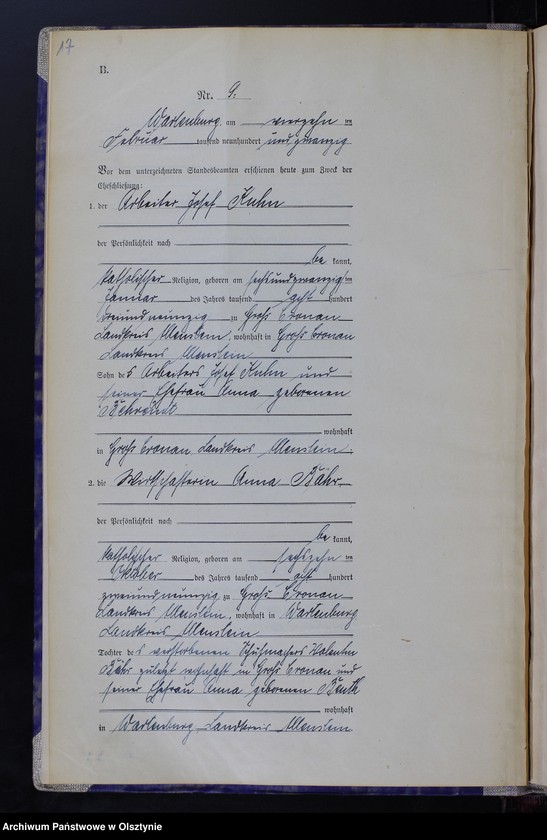 17
B.
Nr. 9.
Wartenburg am vierzehn ten
Februar tausend neunhundert und zwanzig
Vor dem unterzeichneten Standesbeamten erschienen heute zum Zweck der
Eheschließung:
1. der Arbeiter Josef Kuhn
der Persönlichkeit nach
be kannt,
katholischer Religion, geboren am sechsundzwanzig ten
Januar des Jahres tausend acht hundert
dreiundneunzig zu Groß Cronau
Landkreis Allenstein, wohnhaft in Groß Cronau
Landkreis Allenstein
Sohn des Arbeiters Josef Kuhn und
seiner Ehefrau Anna geborenen
wohnhaft
in Groß Cronau Landkreis Allenstein.
2. die Wirtschafterin Anna Bähr
der Persönlichkeit nach
be kannt,
katholischer Religion, geboren am sechszehn ten
Oktober des Jahres tausend acht hundert
zweiundneunzig zu Groß Cronau
Landkreis Allenstein, wohnhaft in Wartenburg
Landkreis Allenstein
Tochter des verstorbenen Schuhmachers Valentin
Bähr zuletzt wohnhaft in Groß Cronau und
seiner Ehefrau Anna geborenen
wohnhaft
in Wartenburg Landkreis Allenstein.
Archiwum Państwowe w Olsztynie